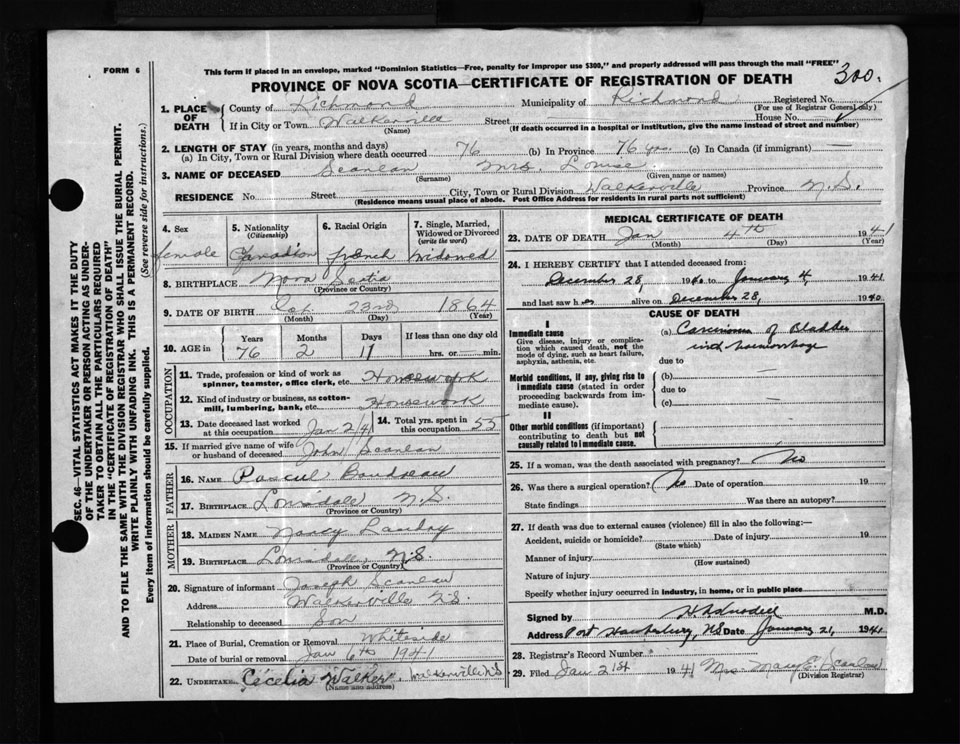 FORM 6
This form if placed in an envelope, marked "Dominion Statistics—Free, penalty for improper use $300," and properly addressed will pass through the mail "FREE"
300.
PROVINCE OF NOVA SCOTIA—CERTIFICATE OF REGISTRATION OF DEATH
1. PLACE OF DEATH County of Richmond Municipality of Richmond Registered No.
(For use of Registrar General only)
If in City or Town Walkerville Street House No.
(Name) (If death occurred in a hospital or institution, give the name instead of street and number)
2. LENGTH OF STAY (in years, months and days)
(a) In City, Town or Rural Division where death occurred 76 (b) In Province 76 yrs. (c) In Canada (if immigrant) —
3. NAME OF DECEASED Scanlan Mrs. Louise
(Surname) (Given name or names)
RESIDENCE No. Street City, Town or Rural Division Walkerville Province N.S.
(Residence means usual place of abode. Post Office Address for residents in rural parts not sufficient)
4. Sex 5. Nationality (Citizenship) 6. Racial Origin 7. Single, Married, Widowed or Divorced (write the word)
female Canadian french Widowed
8. BIRTHPLACE Nova Scotia
(Province or Country)
9. DATE OF BIRTH Oct 23rd 1864
(Month) (Day) (Year)
10. AGE in Years Months Days If less than one day old
76 2 11 hrs. or min.
OCCUPATION
11. Trade, profession or kind of work as spinner, teamster, office clerk, etc. Housework
12. Kind of industry or business, as cotton-mill, lumbering, bank, etc. Housework
13. Date deceased last worked at this occupation Jan 2/41 14. Total yrs. spent in this occupation 55
15. If married give name of wife or husband of deceased John Scanlan
FATHER
16. NAME Pascul
17. BIRTHPLACE N.S.
MOTHER
18. MAIDEN NAME Nancy
19. BIRTHPLACE N.S.
(Province or Country)
20. Signature of informant Joseph Scanlan
Address Walkerville N.S.
Relationship to deceased Son
21. Place of Burial, Cremation or Removal Whiteside
Date of burial or removal Jan 6th 1941
22. UNDERTAKER Cecelia Walker, Walkerville N.S.
(Name and address)
MEDICAL CERTIFICATE OF DEATH
23. DATE OF DEATH Jan 4th 1941
(Month) (Day) (Year)
24. I HEREBY CERTIFY that I attended deceased from:
December 28, 1940 to January 4, 1941
and last saw her alive on December 28, 1940
CAUSE OF DEATH
I
Immediate cause (a) Carcinoma of Bladder
Give disease, injury or complication which caused death, not the mode of dying, such as heart failure, asphyxia, asthenia, etc.
with haemorrhage
due to
Morbid conditions, if any, giving rise to immediate cause (stated in order proceeding backwards from immediate cause).
(b) —
due to
(c) —
II
Other morbid conditions (if important) contributing to death but not causally related to immediate cause.
25. If a woman, was the death associated with pregnancy? No
26. Was there a surgical operation? No Date of operation 19
State findings Was there an autopsy?
27. If death was due to external causes (violence) fill in also the following:—
Accident, suicide or homicide? Date of injury 19
(State which)
Manner of injury
(How sustained)
Nature of injury
Specify whether injury occurred in industry, in home, or in public place
Signed by M.D.
Address Port Hawkesbury, NS Date January 21, 1941
28. Registrar's Record Number
29. Filed Jan 21st 1941 Mrs. Mary E. Scanlan
(Division Registrar)
SEC. 46—VITAL STATISTICS ACT MAKES IT THE DUTY
OF THE UNDERTAKER OR PERSON ACTING AS UNDER-
TAKER TO OBTAIN ALL THE PARTICULARS REQUIRED
IN THE "CERTIFICATE OF REGISTRATION OF DEATH"
AND TO FILE THE SAME WITH THE DIVISION REGISTRAR WHO SHALL ISSUE THE BURIAL PERMIT.
WRITE PLAINLY WITH UNFADING INK. THIS IS A PERMANENT RECORD.
Every item of information should be carefully supplied. (See reverse side for instructions.)